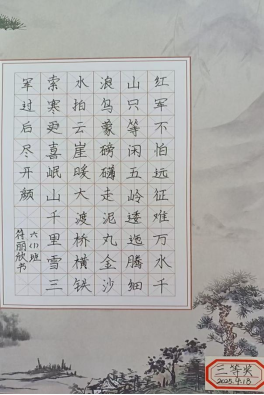 红军不怕远征难万水千
山只等闲五岭逶迤腾细
浪乌蒙磅礴走泥丸金沙
水拍云崖暖大渡桥横铁
索寒更喜岷山千里雪三
军过后尽开颜
六(1)班
符丽欣书
三等奖
2025.9.18